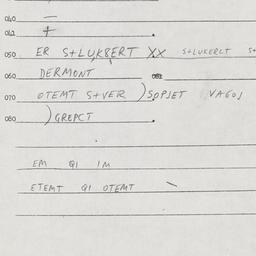 040 —
042 +
050 ER S+LUKBERT XX S+LUKERCT S+
060 DERMONT
070 OTEMT S+VER )SOPJET VAGOJ
080 )GREPCT
EM QI IM
ETEMT QI OTEMT \